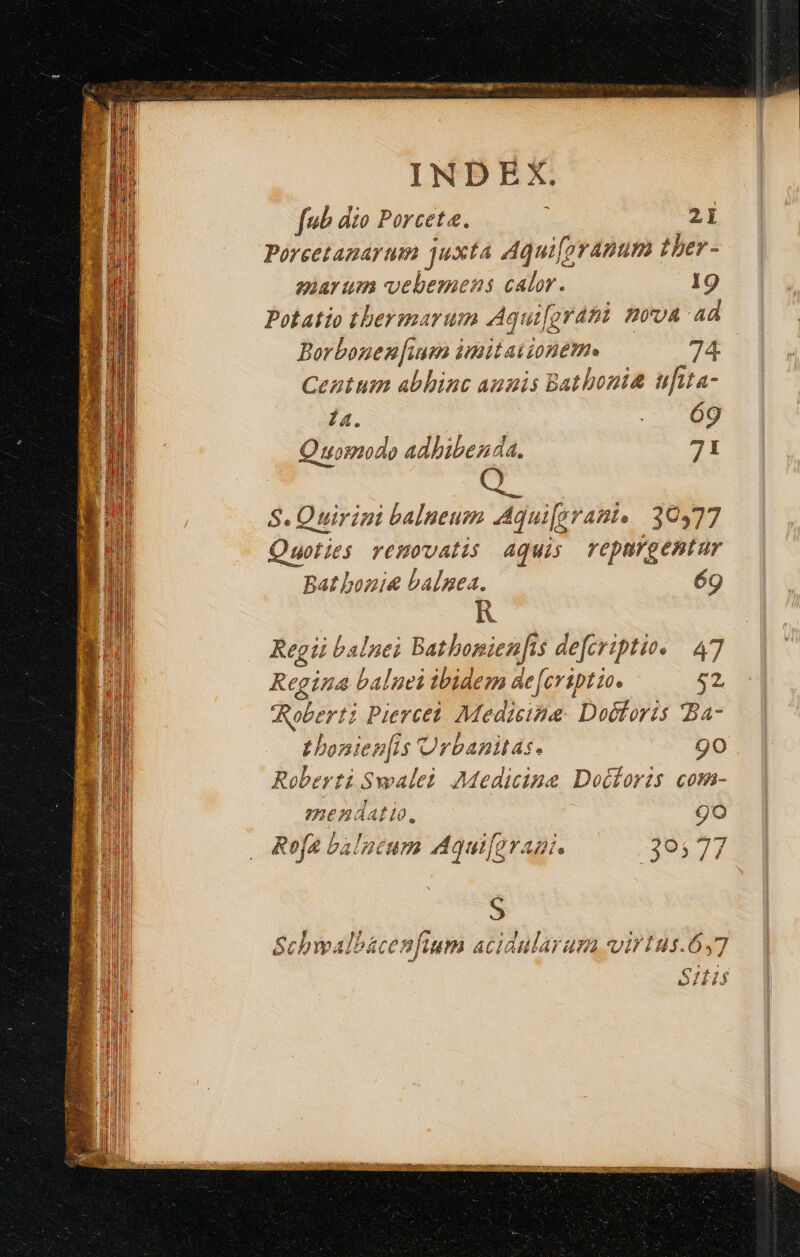 INDEX.
ſub dio Porcetæ. 21
Porcetanarum juxta Aquiſgranum ther-
marum vehemens calor. 19
Potatio thermarum Aquiſgrani nova ad
Borbonenſium imitationem. 74
Centum abhinc annis Bathoniæ uſita-
ta. 69
Quomodo adhibenda. 71
Q
S. Quirini balneum Aquiſgrani. 30,77
Quoties renovatis aquis repurgentur
Bathoniæ balnea. 69
R
Regii balnei Bathonienſis deſcriptio. 47
Reginæ balnei ibidem deſcriptio. 52
Roberti Piercei Medicinæ Doctoris Ba-
thonienſis Urbanitas. 90
Roberti Swalei Medicinæ Doctoris com-
mendatio. 90
Roſæ balneum Aquiſgrani. 30,77
S
Schwalbacenſium acidularum virtus.6,7
Sitis